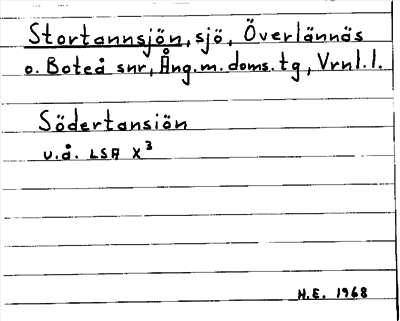 Stortannsjön, sjö, Överlännäs
o. Boteå snr, Ång.m. doms.tg, Vrnl.l.
Södertansiön
u.å. LSA X³
H.E. 1968